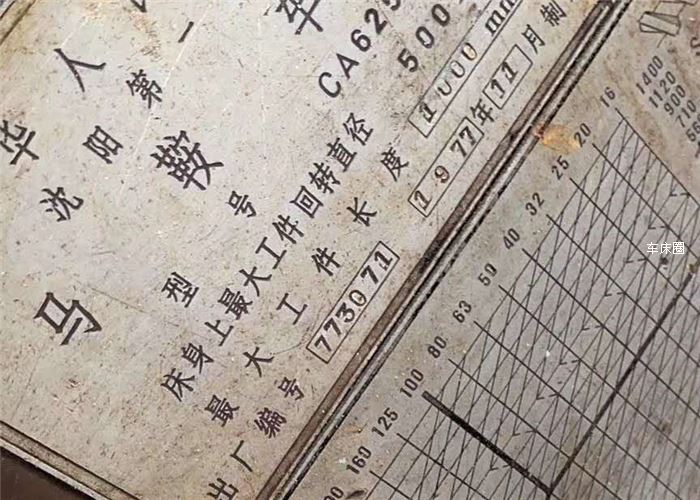 华人
沈阳第一
马鞍车
型号 CA625
床身上最大工件回转直径 500
最大工件长度 1000 mm
出厂编号 773071 1977年11月制
16 20 25 32 40 50 63 80 100 125 160
1400
1120
900
71
车床圈